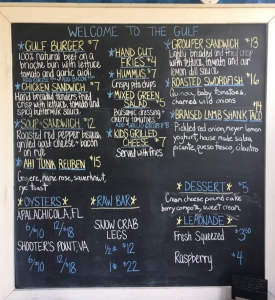 WELCOME TO THE GULF
GULF BURGER $7
100% natural beef on a
brioche bun with lettuce
tomato and garlic aioli
CHICKEN SANDWICH $7
Hand breaded tenders fried
crisp with lettuce, tomato and
spicy buttermilk sauce
SANDWICH $12
Roasted red pepper
goat cheese + bacon
on rye
AHI TUNA REUBEN $15
Gruyere, horse rose, sauerkraut,
rye toast
HAND CUT
FRIES $4
HUMMUS $7
Crispy pita chips
MIXED GREEN
SALAD $5
Balsamic dressing +
cherry tomatoes
KIDS GRILLED
CHEESE $7
Served with fries
GROUPER SANDWICH $13
Lightly breaded and fried crisp
with lettuce, tomato and our
lemon dill sauce
ROASTED SWORDFISH $16
Quinoa, baby tomatoes,
charred wild onions
$14
BRAISED LAMB SHANK TACO
Pickled red onion, meyer lemon
yoghurt, house made salsa
picante, queso fresco, cilantro
OYSTERS
APALACHICOLA, FL
6/10 12/18
SHOOTER'S POINT, VA
6/10 12/18
RAW BAR
SNOW CRAB
LEGS
1/2# $12
1# $22
DESSERT $5
Cream cheese pound cake
berry compote, sweet cream
LEMONADE
Fresh Squeezed $3.50
Raspberry $4